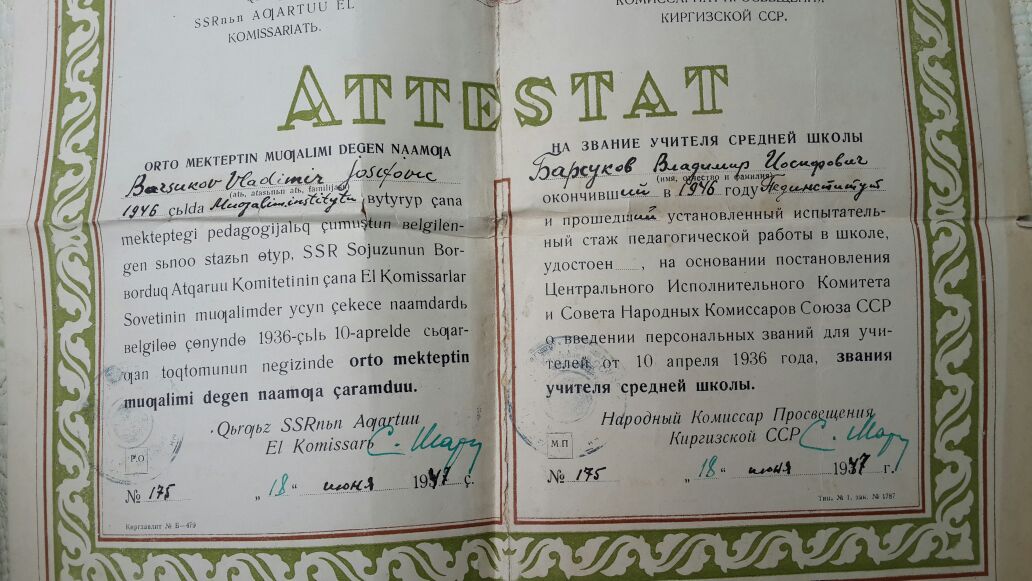 SSRnьn AQARTUU EL
KOMISSARIATЬ.
КИРГИЗСКОЙ ССР.
ATTESTAT
ORTO MEKTEPTIN MUƢALIMI DEGEN NAAMƢA
Barsukov Vladimir Josifovic
(atь, atasьnьn atь, familijasь)
1946 çьlda Muƣalim institutun bytyryp çana
mekteptegi pedagogijalьq çumuştun belgilen-
gen sьnoo stazьn ɵtyp, SSR Sojuzunun Bor-
ʙorduq Atqaruu Komitetinin çana El Komissarlar
Sovetinin muƣalimder ycyn çekece naamdardь
belgilɵɵ çɵnyndɵ 1936-çьlь 10-aprelde cьƣar-
ƣan toqtomunun negizinde orto mekteptin
muƣalimi degen naamƣa çaramduu.
Qьrƣьz SSRnьn Aƣartuu
El Komissarь
P.O
№ 175 „18“ июня 1947 ç.
Киргглавлит № Б—479
КИРГИЗСКОЙ ССР.
НА ЗВАНИЕ УЧИТЕЛЯ СРЕДНЕЙ ШКОЛЫ
Барсуков Владимир Иосифович
(имя, отчество и фамилия)
окончивший в 1946 году Пединститут
и прошедший установленный испытатель-
ный стаж педагогической работы в школе,
удостоен , на основании постановления
Центрального Исполнительного Комитета
и Совета Народных Комиссаров Союза ССР
о введении персональных званий для учи-
телей от 10 апреля 1936 года, звания
учителя средней школы.
Народный Комиссар Просвещения
Киргизской ССР
М.П
№ 175 „18“ июня 1947 г.
Тип. № 1, зак. № 1787